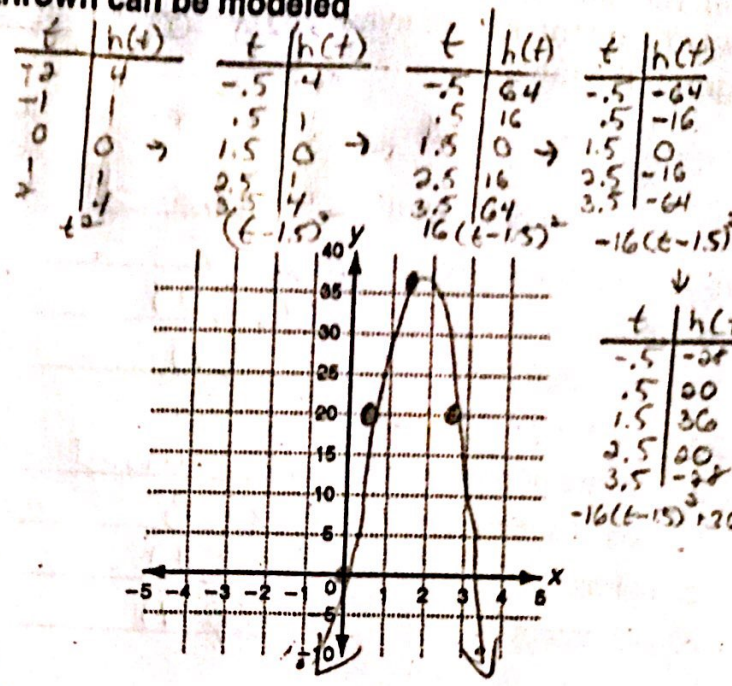 thrown can be modeled
t h(t)
-2 4
-1 1
0 0 →
1 1
2 4
t²
t h(t)
-.5 4
.5 1
1.5 0 →
2.5 1
3.5 4
(t-1.5)²
t h(t)
-.5 64
.5 16
1.5 0 →
2.5 16
3.5 64
16(t-1.5)²
t h(t)
-.5 -64
.5 -16
1.5 0
2.5 -16
3.5 -64
-16(t-1.5)²
↓
t h(t
-.5 -28
.5 20
1.5 36
2.5 20
3.5 -28
-16(t-1.5)²+36
y
40
35
30
25
20
15
10
5
-5 -4 -3 -2 -1 0 1 2 3 4 5 x
-5
-10